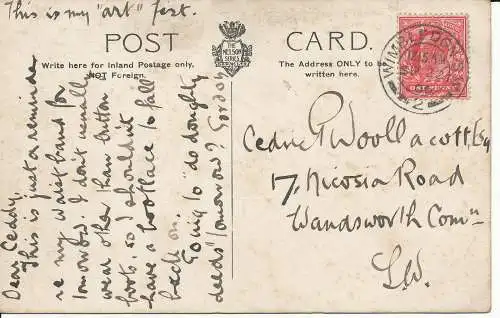 This is my "art" fest.
POST CARD.
THE NELSON SERIES
Write here for Inland Postage only, NOT Foreign.
The Address ONLY to be written here.
WIMBLEDON
ONE PENNY
Dear Ceddy,
This is just a reminder
re my waist band for
tomorrow. I don't usually
wear other than button
boots, so I shouldn't
have a bootlace to fall
back on.
Going to "do doughty
deeds" tomorrow? Gordon
Cedric Woollacott Esq
17, Nicosia Road
Wandsworth Comn
S.W.